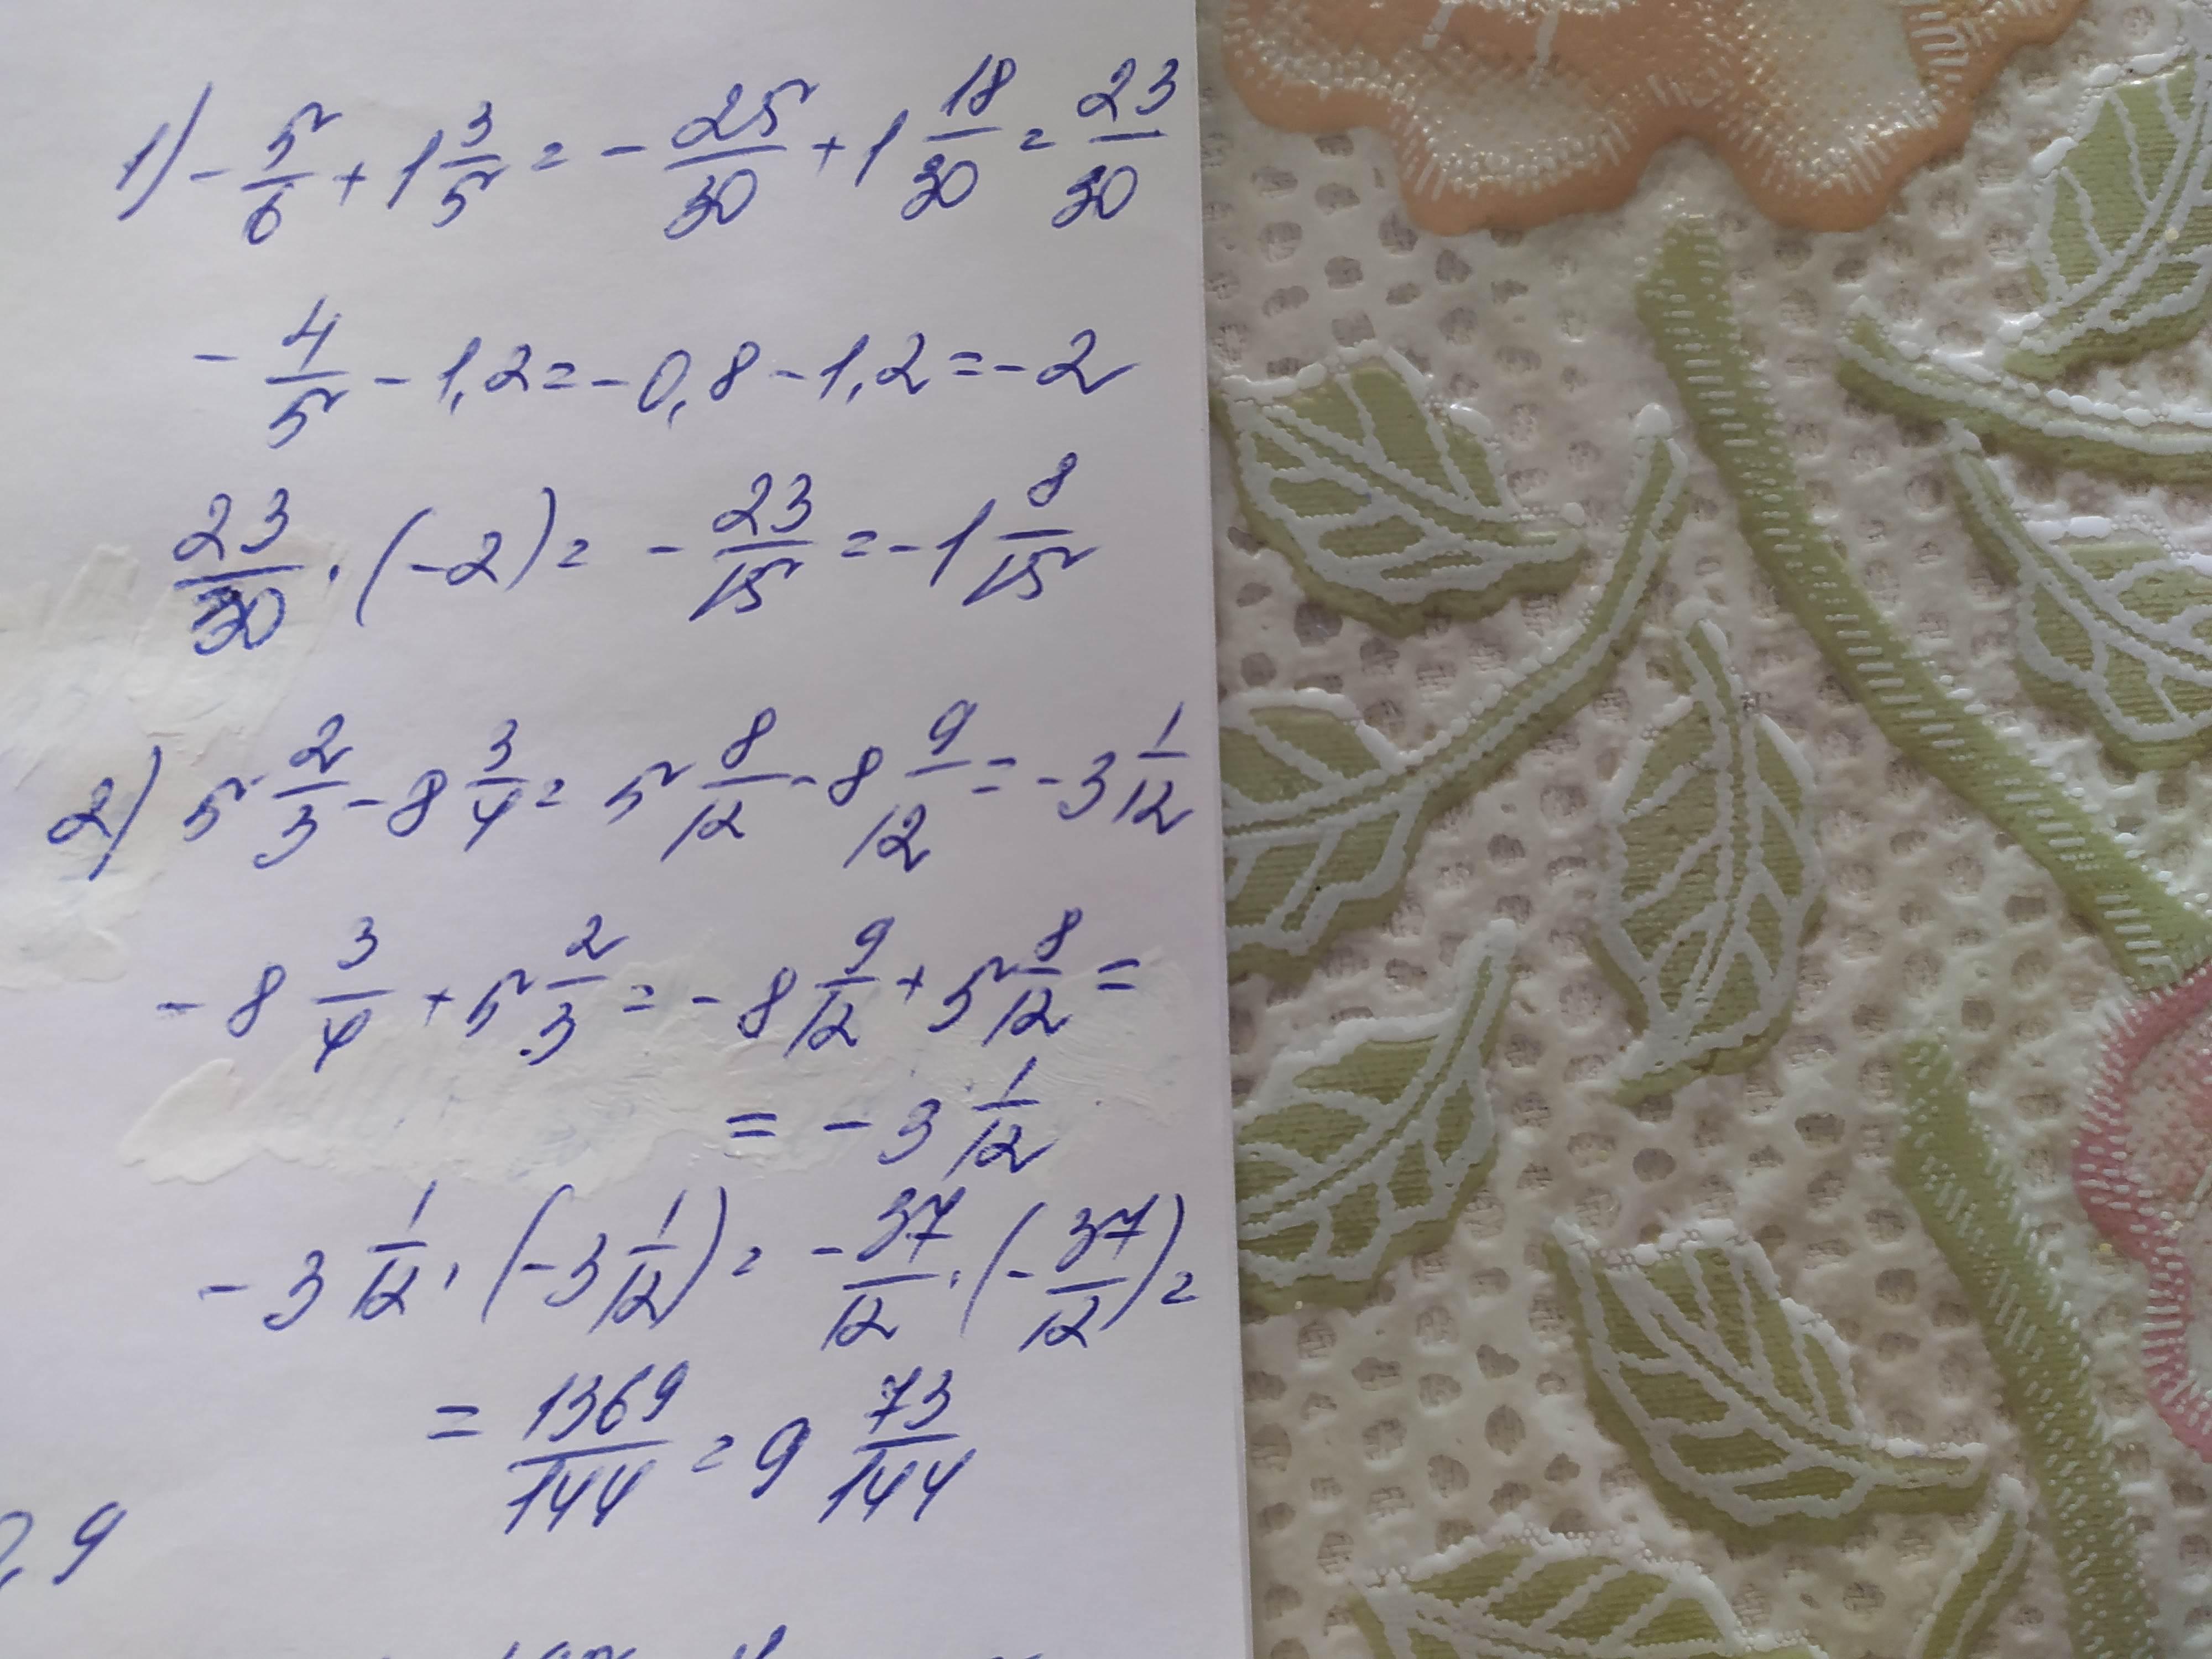 1) -5/6 + 1 3/5 = -25/30 + 1 18/30 = 23/30
-4/5 - 1,2 = -0,8 - 1,2 = -2
23/30 · (-2) = -23/15 = -1 8/15
2) 5 2/3 - 8 3/4 = 5 8/12 - 8 9/12 = -3 1/12
-8 3/4 + 5 2/3 = -8 9/12 + 5 8/12 =
= -3 1/12
-3 1/12 · (-3 1/12) = -37/12 · (-37/12) =
= 1369/144 = 9 73/144
,9